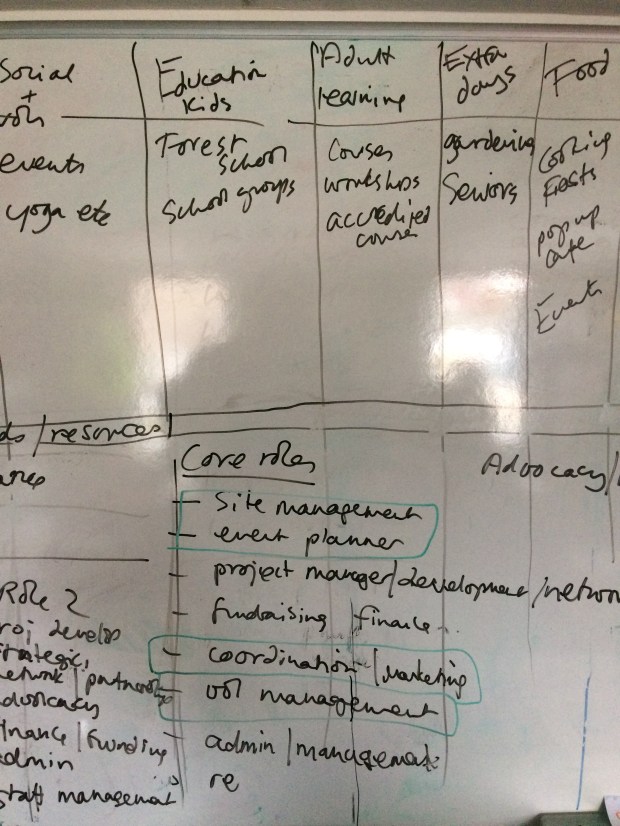 Social
+
events
yoga etc
Education
Kids
Forest
School
School groups
Adult
learning
Couses
workshops
accredited
courses
Extra
days
gardening
Seniors
Food
Cooking
Feasts
pop up
cafe
Events
/resources
Core roles
- Site management
- event planner
- project manager/development/networ
- fundraising / finance
- coordination / marketing
- vol management
- admin / management
re
Advocacy/
Role 2
roj develop
trategic,
etwork / partnership
dvocacy
inance / funding
admin
staff management